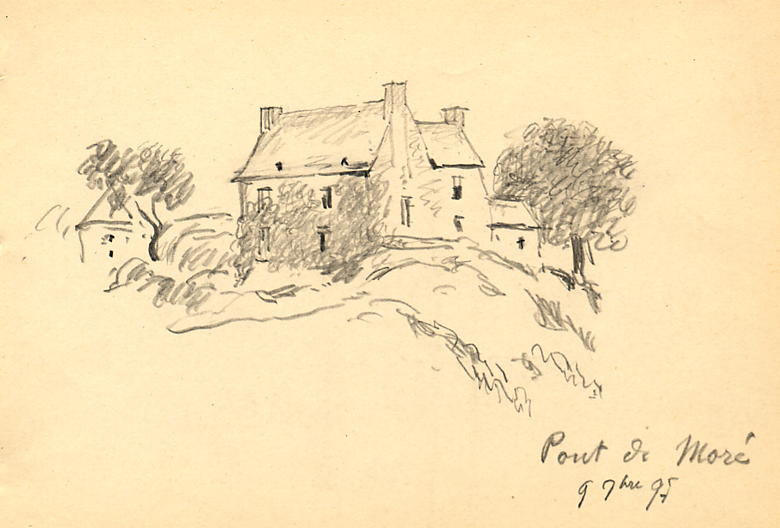 Pont de Moré
9 7bre 95